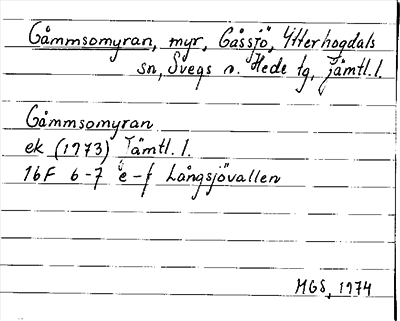 Gåmmsomyran, myr, Gåssjö, Ytterhogdals
sn, Svegs o. Hede tg, Jämtl. l.
Gåmmsomyran
ek (1973) Jämtl. l.
16F 6-7 e-f Långsjövallen
MGS, 1974